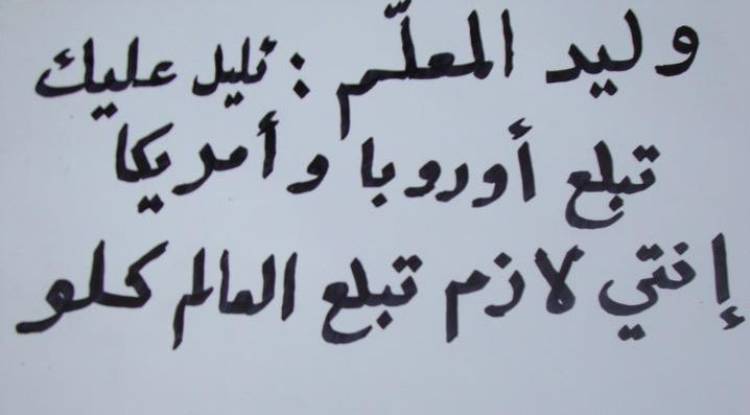 وليد المعلّم : قليل عليك
تبلع أوروبا وأمريكا
إنتي لازم تبلع العالم كلو